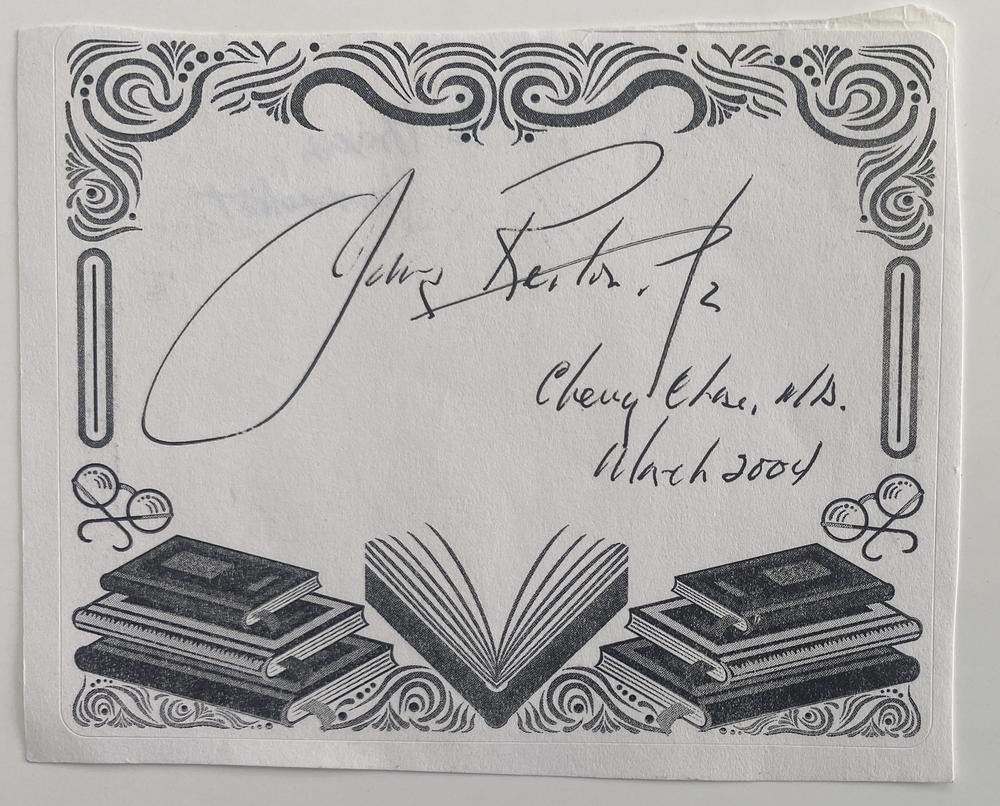 James Reston, Jr
Chevy Chase, MD.
March 2004